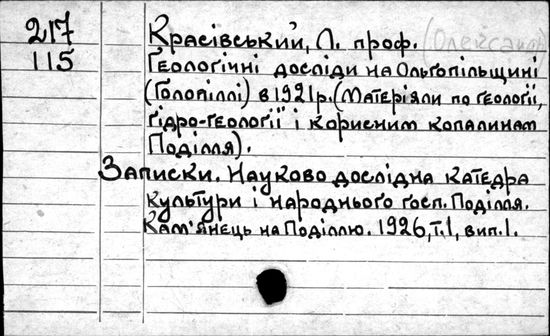 217
115
Красівський, Л. проф. (Олександ
Геологічні досліди на Ольгопільщині
(Голопіллі) в 1921 р. (Матеріяли по геології,
гідро-геології і корисним копалинам
Поділля).
Записки. Науково дослідна катедра
культури і народнього госп. Поділля.
Кам'янець на Поділлю. 1926, т. 1, вип. 1.